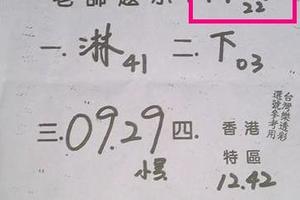 22
一.淋41 二.下03
三.09.29 四. 香港
特區
12.42
台灣樂透彩
選號參考用